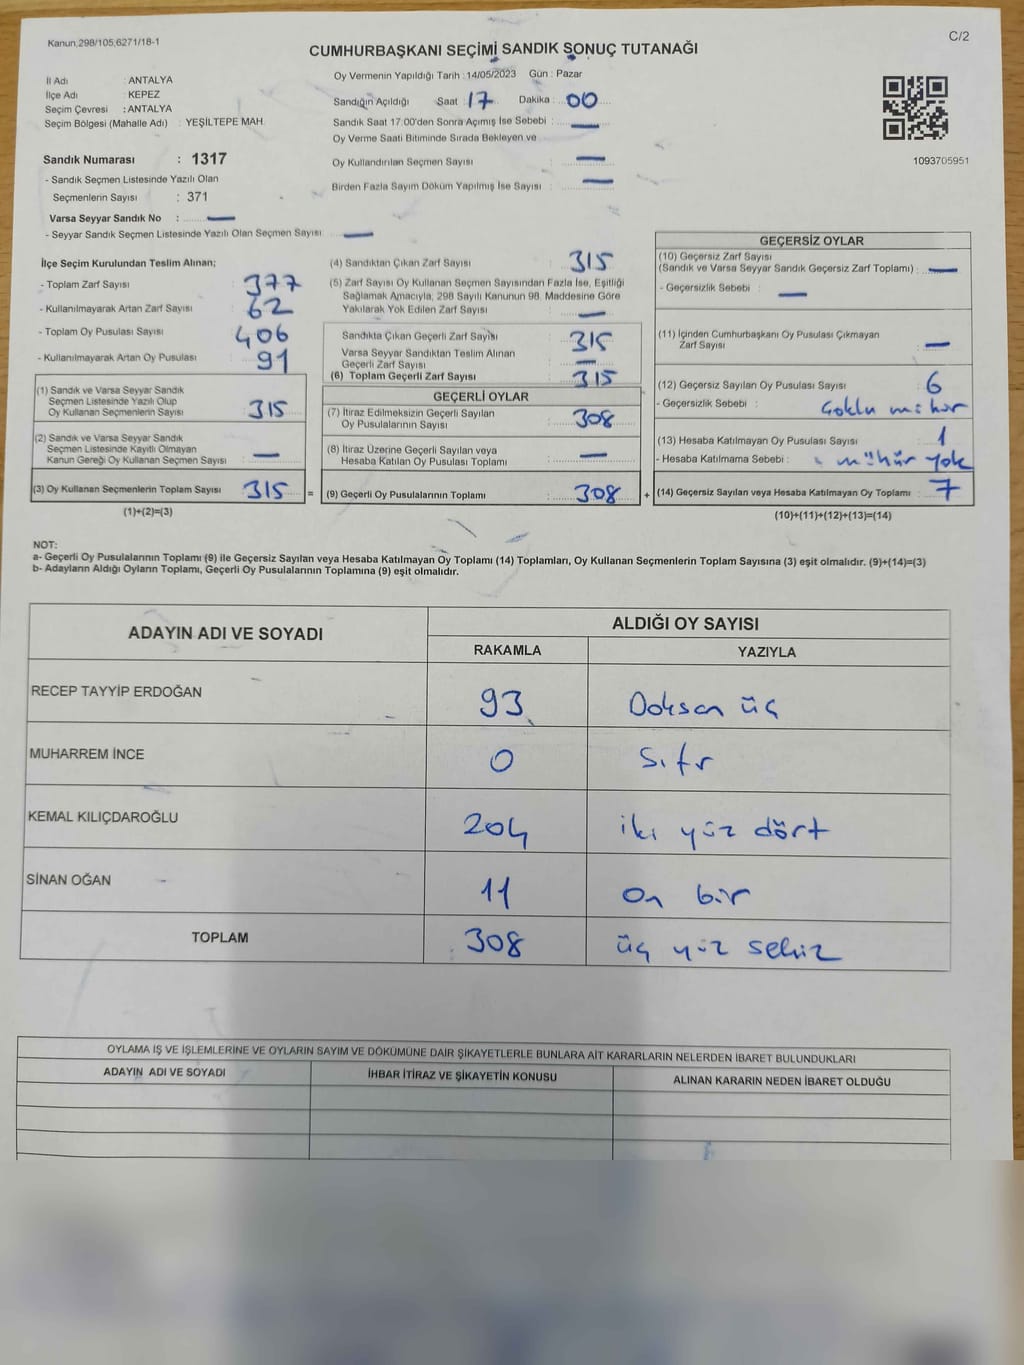 Kanun,298/105,6271/18-1
C/2
CUMHURBAŞKANI SEÇİMİ SANDIK SONUÇ TUTANAĞI
İl Adı : ANTALYA
İlçe Adı : KEPEZ
Seçim Çevresi : ANTALYA
Seçim Bölgesi (Mahalle Adı) : YEŞİLTEPE MAH.
Oy Vermenin Yapıldığı Tarih : 14/05/2023 Gün : Pazar
Sandığın Açıldığı Saat : 17 Dakika : 00
Sandık Saat 17:00'den Sonra Açımış İse Sebebi : —
Oy Verme Saati Bitiminde Sırada Bekleyen ve
Oy Kullandırılan Seçmen Sayısı : —
Birden Fazla Sayım Döküm Yapılmış İse Sayısı : —
1093705951
Sandık Numarası : 1317
- Sandık Seçmen Listesinde Yazılı Olan
Seçmenlerin Sayısı : 371
Varsa Seyyar Sandık No : —
- Seyyar Sandık Seçmen Listesinde Yazılı Olan Seçmen Sayısı : —
İlçe Seçim Kurulundan Teslim Alınan;
- Toplam Zarf Sayısı 377
- Kullanılmayarak Artan Zarf Sayısı 62
- Toplam Oy Pusulası Sayısı 406
- Kullanılmayarak Artan Oy Pusulası 91
(1) Sandık ve Varsa Seyyar Sandık
Seçmen Listesinde Yazılı Olup
Oy Kullanan Seçmenlerin Sayısı 315
(2) Sandık ve Varsa Seyyar Sandık
Seçmen Listesinde Kayıtlı Olmayan
Kanun Gereği Oy Kullanan Seçmen Sayısı —
(3) Oy Kullanan Seçmenlerin Toplam Sayısı 315 =
(1)+(2)=(3)
(4) Sandıktan Çıkan Zarf Sayısı 315
(5) Zarf Sayısı Oy Kullanan Seçmen Sayısından Fazla İse, Eşitliği
Sağlamak Amacıyla, 298 Sayılı Kanunun 98. Maddesine Göre
Yakılarak Yok Edilen Zarf Sayısı —
Sandıkta Çıkan Geçerli Zarf Sayısı 315
Varsa Seyyar Sandıktan Teslim Alınan
Geçerli Zarf Sayısı —
(6) Toplam Geçerli Zarf Sayısı 315
GEÇERLİ OYLAR
(7) İtiraz Edilmeksizin Geçerli Sayılan
Oy Pusulalarının Sayısı : 308
(8) İtiraz Üzerine Geçerli Sayılan veya
Hesaba Katılan Oy Pusulası Toplamı : —
(9) Geçerli Oy Pusulalarının Toplamı : 308 +
GEÇERSİZ OYLAR
(10) Geçersiz Zarf Sayısı
(Sandık ve Varsa Seyyar Sandık Geçersiz Zarf Toplamı) : —
- Geçersizlik Sebebi : —
(11) İçinden Cumhurbaşkanı Oy Pusulası Çıkmayan
Zarf Sayısı : —
(12) Geçersiz Sayılan Oy Pusulası Sayısı : 6
- Geçersizlik Sebebi : Çoklu mühür
(13) Hesaba Katılmayan Oy Pusulası Sayısı : 1
- Hesaba Katılmama Sebebi : mühür yok
(14) Geçersiz Sayılan veya Hesaba Katılmayan Oy Toplamı : 7
(10)+(11)+(12)+(13)=(14)
NOT:
a- Geçerli Oy Pusulalarının Toplamı (9) ile Geçersiz Sayılan veya Hesaba Katılmayan Oy Toplamı (14) Toplamları, Oy Kullanan Seçmenlerin Toplam Sayısına (3) eşit olmalıdır. (9)+(14)=(3)
b- Adayların Aldığı Oyların Toplamı, Geçerli Oy Pusulalarının Toplamına (9) eşit olmalıdır.
ADAYIN ADI VE SOYADI
ALDIĞI OY SAYISI
RAKAMLA YAZIYLA
RECEP TAYYİP ERDOĞAN 93 Doksan üç
MUHARREM İNCE 0 Sıfır
KEMAL KILIÇDAROĞLU 204 iki yüz dört
SİNAN OĞAN 11 On bir
TOPLAM 308 üç yüz sekiz
OYLAMA İŞ VE İŞLEMLERİNE VE OYLARIN SAYIM VE DÖKÜMÜNE DAİR ŞİKAYETLERLE BUNLARA AİT KARARLARIN NELERDEN İBARET BULUNDUKLARI
ADAYIN ADI VE SOYADI İHBAR İTİRAZ VE ŞİKAYETİN KONUSU ALINAN KARARIN NEDEN İBARET OLDUĞU